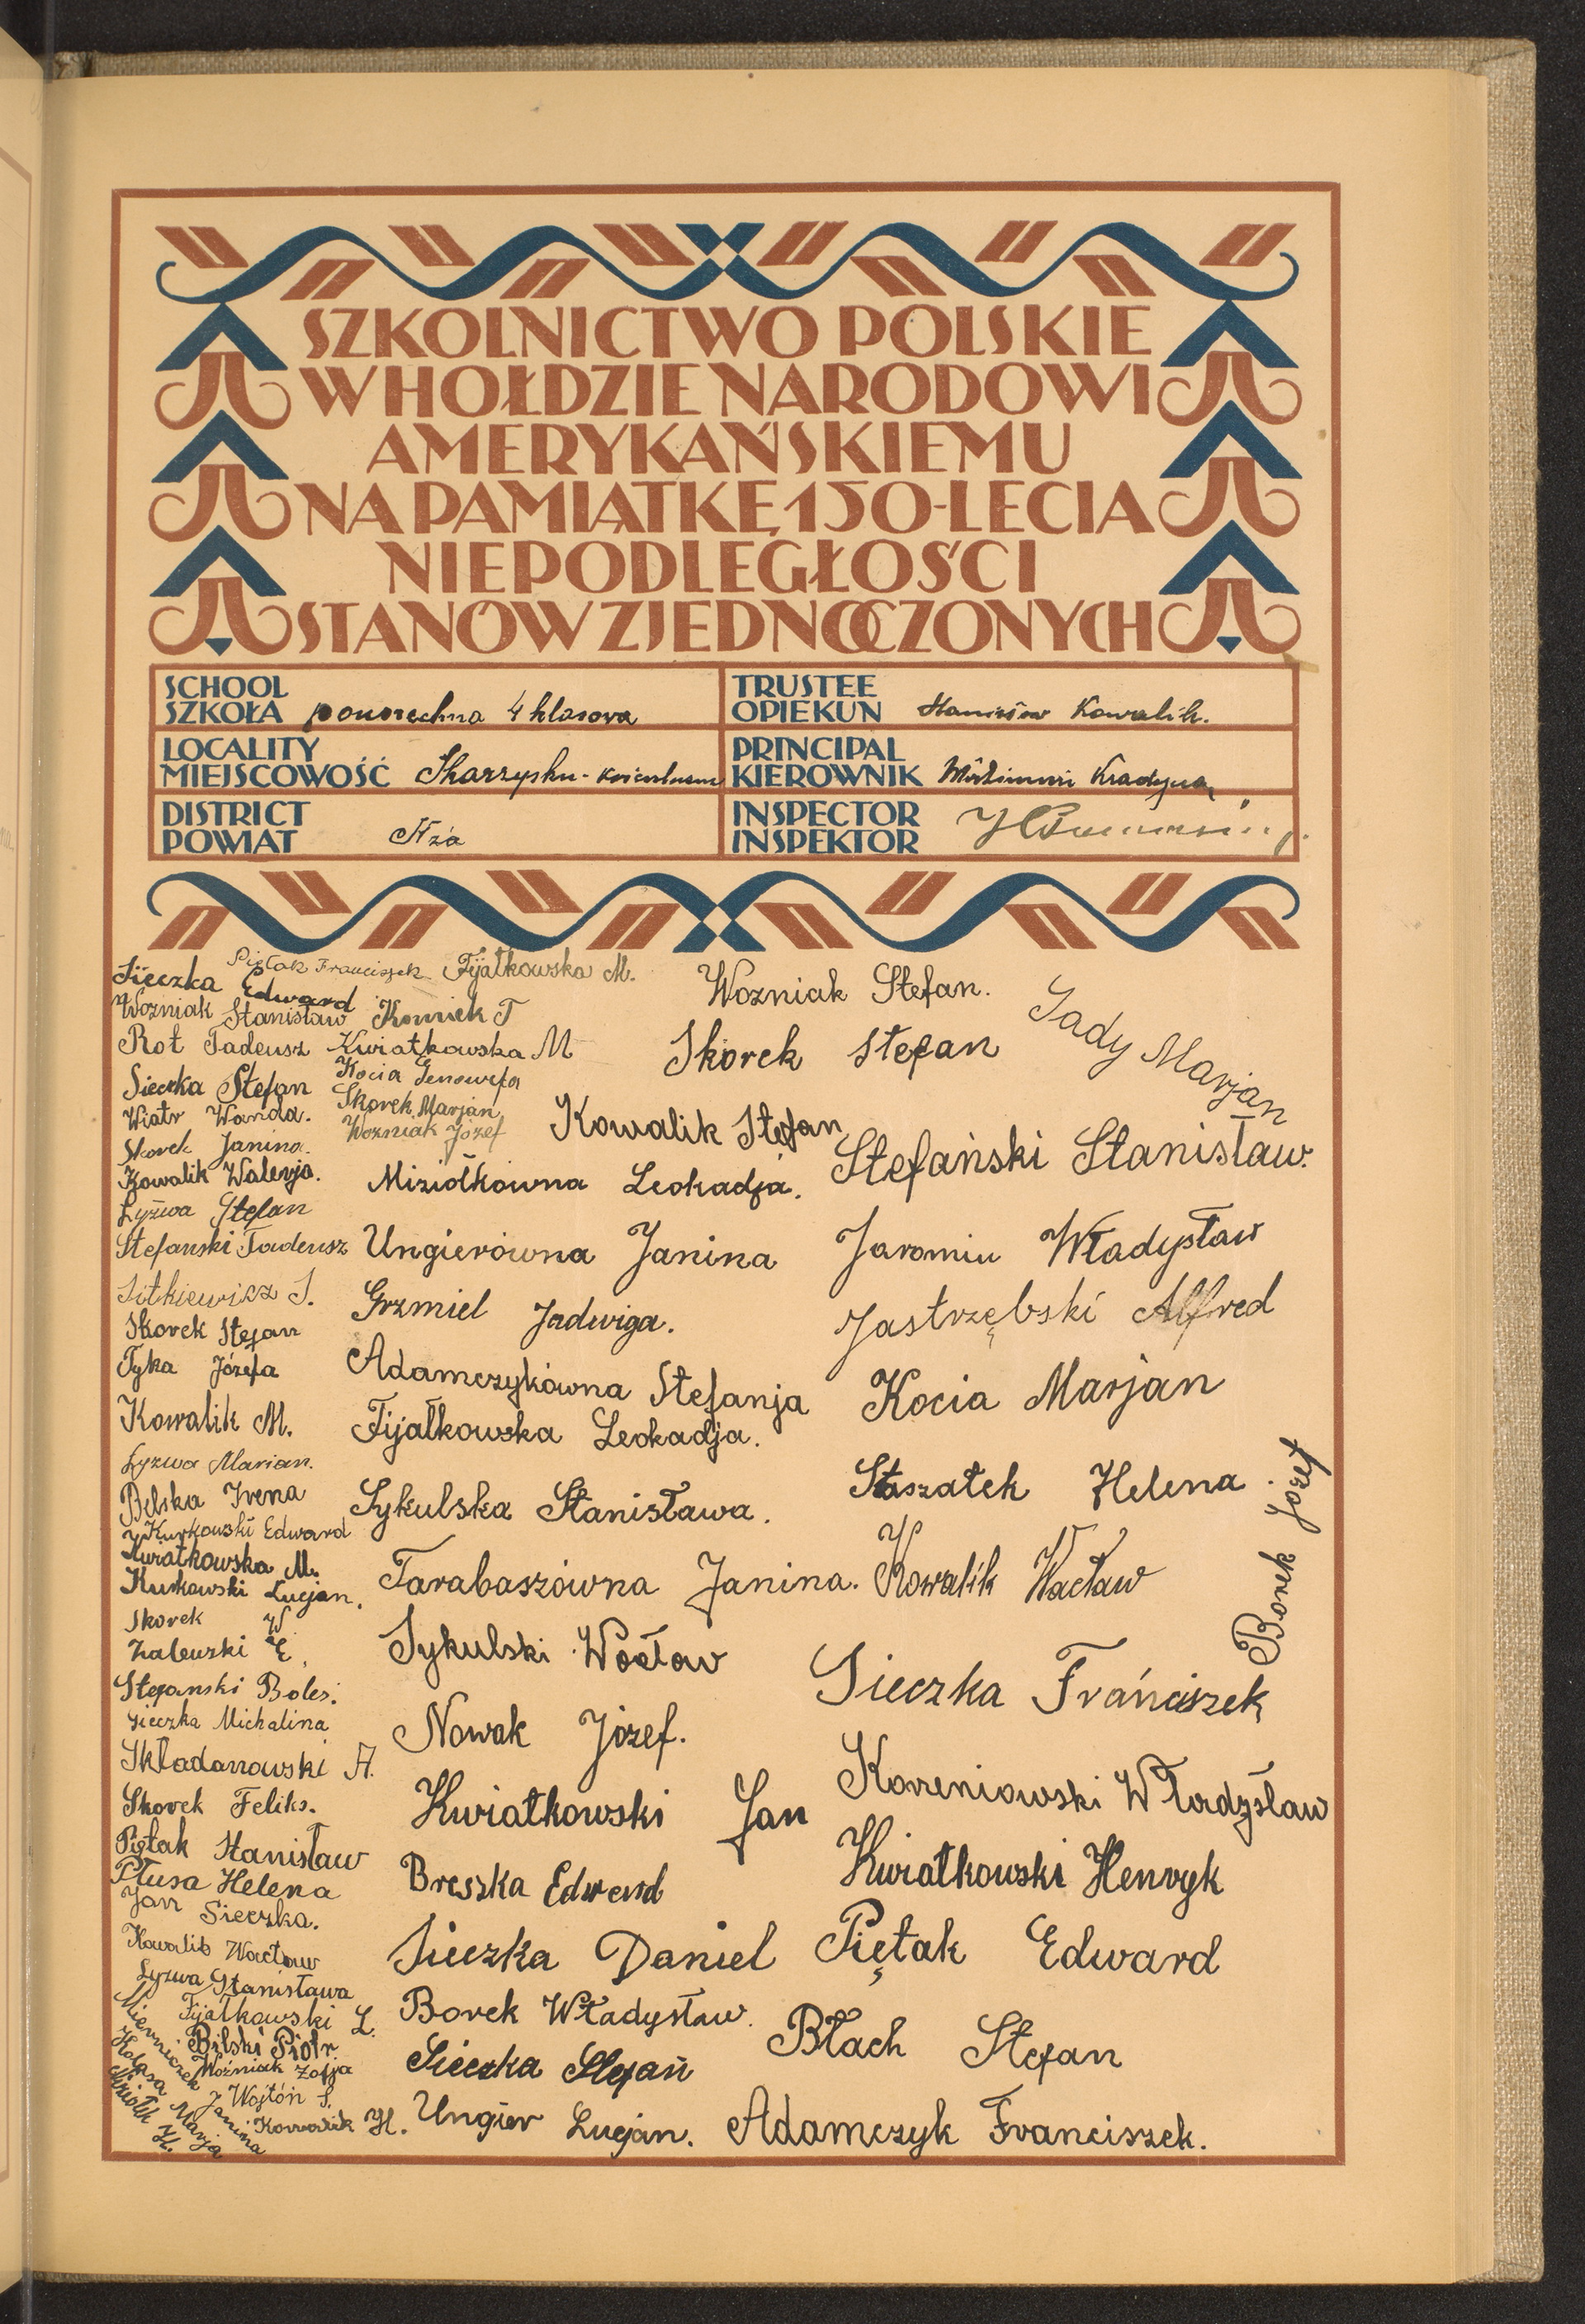 SZKOLNICTWO POLSKIE
W HOŁDZIE NARODOWI
AMERYKAŃSKIEMU
NA PAMIĄTKĘ 150-LECIA
NIEPODLEGŁOŚCI
STANÓW ZJEDNOCZONYCH
SCHOOL
SZKOŁA powszechna 4 klasowa
TRUSTEE
OPIEKUN Stanisław Kowalik.
LOCALITY
MIEJSCOWOŚĆ Skarżysku-
PRINCIPAL
KIEROWNIK
DISTRICT
POWIAT Iłża
INSPECTOR
INSPEKTOR
Sieczka Edward
Piętak Franciszek
Fijałkowska M.
Wozniak Stanisław
Koniek T
Rot Tadeusz
Kwiatkowska M
Sieczka Stefan
Kocia Genowefa
Wiatr Wanda.
Skorek Marjan
Skorek Janina.
Wozniak Józef
Kowalik Walerja.
Łyżwa Stefan
Stefanski Tadeusz
Sitkiewicz S.
Skorek Stefan
Tyka Józefa
Kowalik M.
Łyzwa Marian.
Belska Irena
Kurkowski Edward
Kwiatkowska M.
Kurkowski Lucjan.
Skorek W
Zaleuski E.
Stefanski Boles.
Sieczka Michalina
Składanowski A.
Skorek Feliks.
Piętak Stanisław
Płusa Helena
Jan Sieczka.
Kowalik Wacław
Łyzwa Stanisława
Fijałkowski L.
Bilski Piotr
Woźniak Zofja
Wojtóń S.
Kowalik H.
Mierniczek Janina
Marja
Miziołek H.
Wozniak Stefan.
Skorek Stefan
Kowalik Stefan
Miziołkówna Leokadja.
Ungierówna Janina
Grzmiel Jadwiga.
Adamczykówna Stefanja
Fijałkowska Leokadja.
Sykulska Stanisława.
Tarabaszówna Janina.
Sykulski Wacław
Nowak Józef.
Kwiatkowski Jan
Breszka Edward
Sieczka Daniel
Borek Władysław.
Sieczka Stefan
Ungier Lucjan.
Sady Marjan
Stefański Stanisław.
Jaromin Władysław
Jastrzębski Alfred
Kocia Marjan
Staszałek Helena
Kowalik Wacław
Borek Józef
Sieczka Franciszek
Korzeniowski Władysław
Kwiatkowski Henryk
Piętak Edward
Błach Stefan
Adamczyk Franciszek.